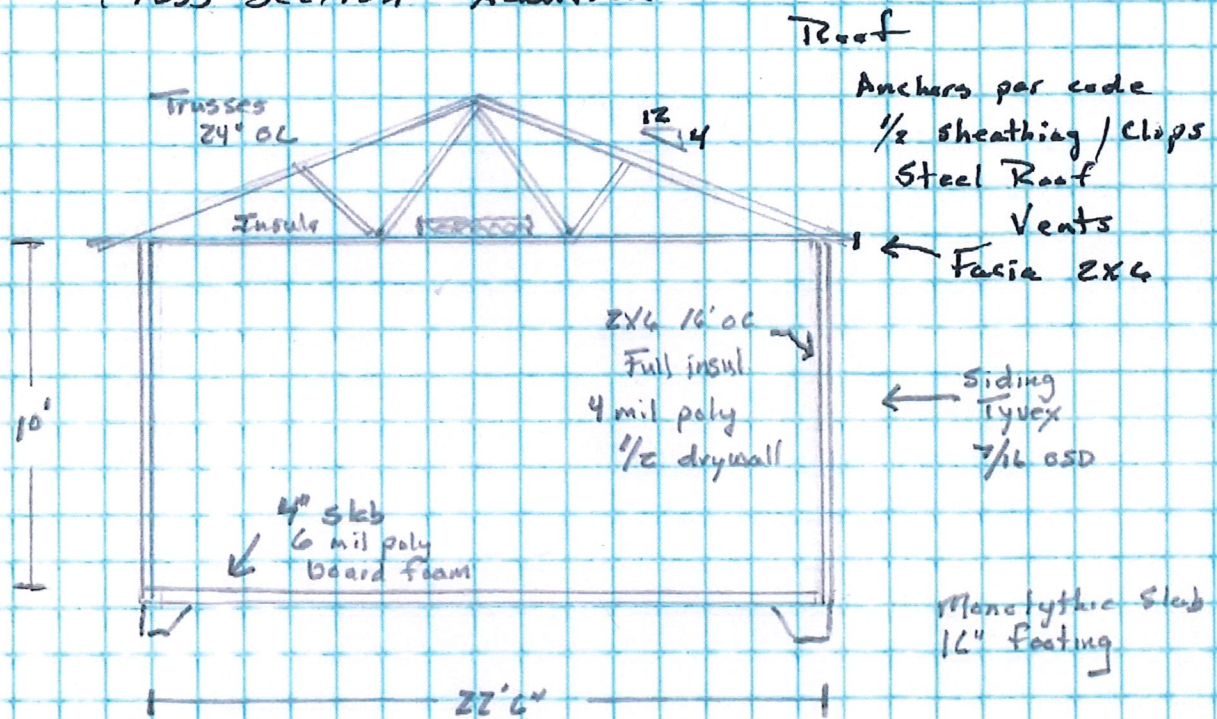 Cross Section
Roof
Anchors per code
1/2 sheathing / Clips
Steel Roof
Vents
Facia 2X6
Trusses
24" OC
12
4
Insul
2X6 16" OC
Full insul
4 mil poly
1/2 drywall
Siding
Tyvex
7/16 OSB
10'
4" Slab
6 mil poly
board foam
Monolythic Slab
16" footing
22'6"